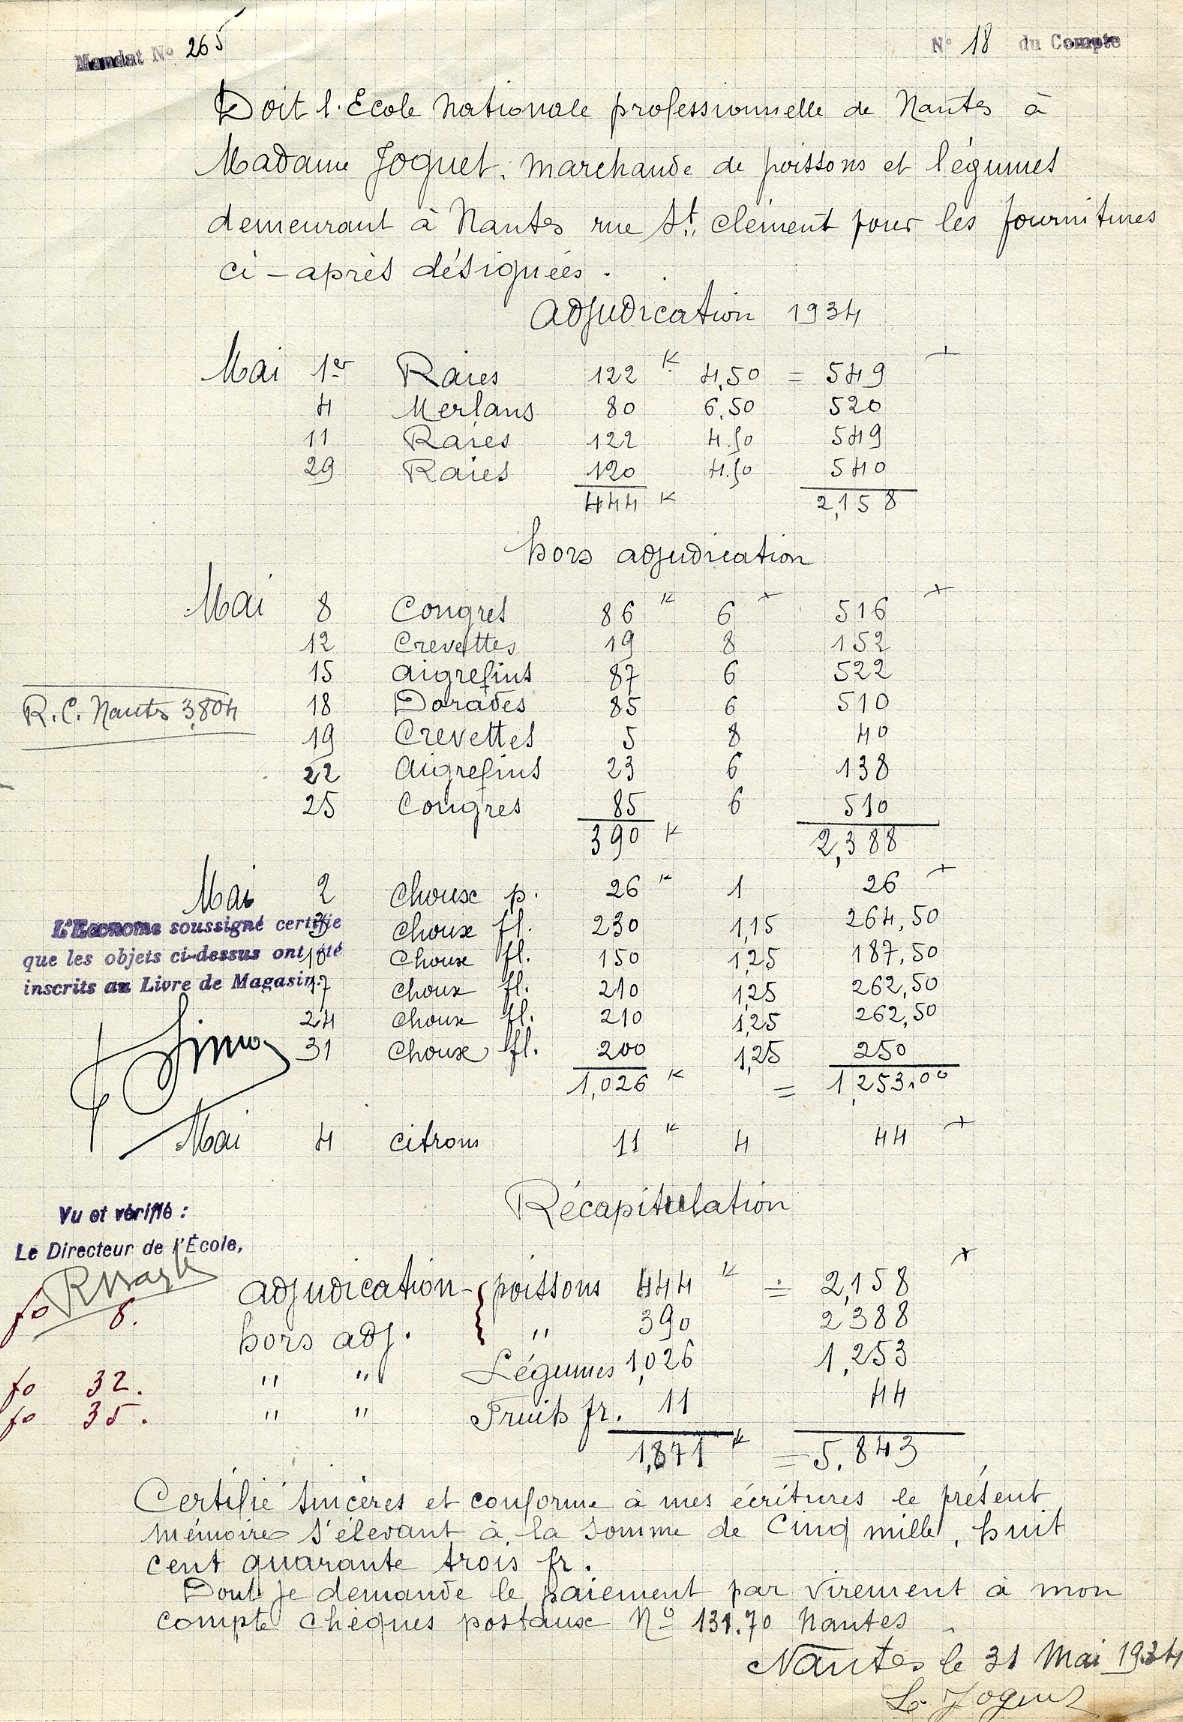 Mandat No 265
N° 18 du Compte
Doit l'Ecole Nationale professionnelle de Nantes à
Madame Joguet, marchande de poissons et légumes
demeurant à Nantes rue St. Clément pour les fournitures
ci-après désignées.
adjudication 1934
Mai 1er Raies 122 K 4,50 = 549
4 Merlans 80 6,50 520
11 Raies 122 4.50 549
29 Raies 120 4.50 540
444 K 2,158
hors adjudication
Mai 8 Congres 86 K 6 516
12 Crevettes 19 8 152
15 aigrefins 87 6 522
R.C. Nantes 3,804
18 Dorades 85 6 510
19 Crevettes 5 8 40
22 aigrefins 23 6 138
25 Congres 85 6 510
390 K 2,388
Mai 2 choux p. 26 K 1 26
L'Econome soussigné certifie
que les objets ci-dessus ont été
inscrits au Livre de Magasin.
3 choux fl. 230 1,15 264,50
10 choux fl. 150 1,25 187,50
17 choux fl. 210 1,25 262,50
24 choux fl. 210 1,25 262,50
31 choux fl. 200 1,25 250
1,026 K = 1,253.00
Mai 4 citrons 11 K 4 44
Récapitulation
Vu et vérifié :
Le Directeur de l'École,
adjudication - poissons 444 K = 2,158
fo 8.
hors adj. " 390 2388
fo 32.
" " Légumes 1,026 1,253
fo 35.
" " Fruits fr. 11 44
1,871 K = 5.843
Certifié sincères et conforme à mes écritures le présent
mémoire s'élevant à la somme de Cinq mille, huit
cent quarante trois fr.
Dont je demande le paiement par virement à mon
compte chèques postaux No 131.70 Nantes
Nantes le 31 Mai 1934